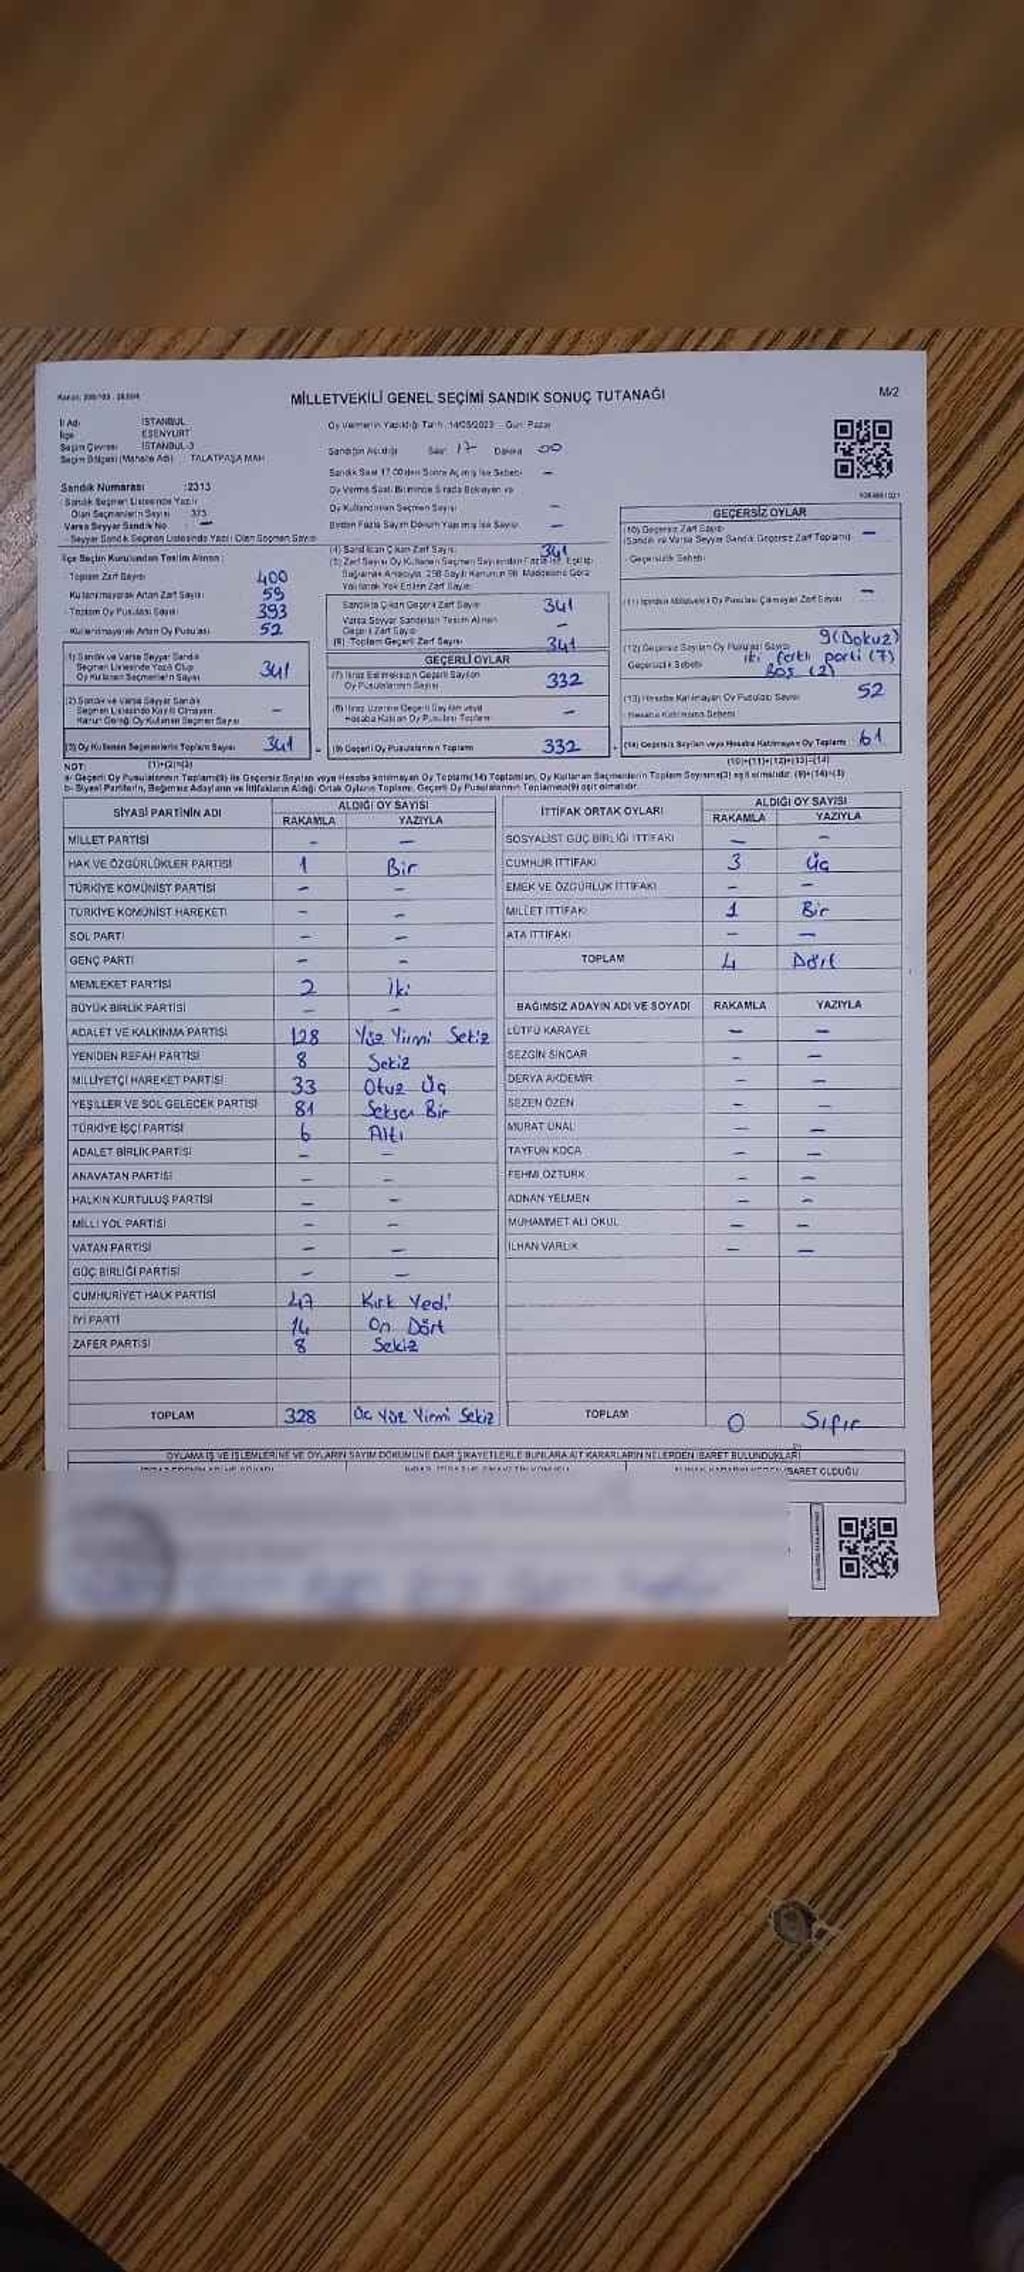 MİLLETVEKİLİ GENEL SEÇİMİ SANDIK SONUÇ TUTANAĞI
M/2
İl Adı İSTANBUL
İlçe ESENYURT
Seçim Çevresi İSTANBUL-3
Seçim Bölgesi (Mahalle Adı) : TALATPAŞA MAH
Oy Vermenin Yapıldığı Tarih :14/05/2023 - Gün: Pazar
Sandığın Açıldığı Saat 17 Dakika 00
Sandık Saat 17.00'den Sonra Açılmış İse Sebebi -
Oy Verme Saati Bitiminde Sırada Bekleyen ve
Oy Kullandırılan Seçmen Sayısı -
Birden Fazla Sayım Döküm Yapılmış İse Sayısı -
Sandık Numarası :2313
Sandık Seçmen Listesinde Yazılı
Olan Seçmenlerin Sayısı 373
Varsa Seyyar Sandık No -
Seyyar Sandık Seçmen Listesinde Yazılı Olan Seçmen Sayısı
İlçe Seçim Kurulundan Teslim Alınan :
Toplam Zarf Sayısı 400
Kullanılmayarak Artan Zarf Sayısı 59
Toplam Oy Pusulası Sayısı 393
Kullanılmayarak Artan Oy Pusulası 52
(1) Sandık ve Varsa Seyyar Sandık
Seçmen Listesinde Yazılı Olup
Oy Kullanan Seçmenlerin Sayısı 341
(2) Sandık ve Varsa Seyyar Sandık
Seçmen Listesinde Kayıtlı Olmayan
Kanun Gereği Oy Kullanan Seçmen Sayısı -
(3) Oy Kullanan Seçmenlerin Toplam Sayısı 341
(4) Sandıktan Çıkan Zarf Sayısı 341
(5) Zarf Sayısı Oy Kullanan Seçmen Sayısından Fazla İse, Eşitliği
Sağlamak Amacıyla, 298 Sayılı Kanunun 98. Maddesine Göre
Yakılarak Yok Edilen Zarf Sayısı
Sandıkta Çıkan Geçerli Zarf Sayısı 341
Varsa Seyyar Sandıktan Teslim Alınan
Geçerli Zarf Sayısı -
(6) Toplam Geçerli Zarf Sayısı 341
GEÇERLİ OYLAR
(7) İtiraz Edilmeksizin Geçerli Sayılan
Oy Pusulalarının Sayısı 332
(8) İtiraz Üzerine Geçerli Sayılan veya
Hesaba Katılan Oy Pusulası Toplamı -
(9) Geçerli Oy Pusulalarının Toplamı 332
GEÇERSİZ OYLAR
(10) Geçersiz Zarf Sayısı
(Sandık ve Varsa Seyyar Sandık Geçersiz Zarf Toplamı) -
Geçersizlik Sebebi
(11) İçinden Milletvekili Oy Pusulası Çıkmayan Zarf Sayısı -
(12) Geçersiz Sayılan Oy Pusulası Sayısı 9(Dokuz)
Geçersizlik Sebebi iki farklı parti (7)
Boş (2)
(13) Hesaba Katılmayan Oy Pusulası Sayısı 52
Hesaba Katılmama Sebebi
(14) Geçersiz Sayılan veya Hesaba Katılmayan Oy Toplamı 61
NOT: (1)+(2)=(3) (10)+(11)+(12)+(13)=(14)
a- Geçerli Oy Pusulalarının Toplamı(9) ile Geçersiz Sayılan veya Hesaba katılmayan Oy Toplamı(14) Toplamları, Oy Kullanan Seçmenlerin Toplam Sayısına(3) eşit olmalıdır. (9)+(14)=(3)
b- Siyasi Partilerin, Bağımsız Adayların ve İttifakların Aldığı Ortak Oyların Toplamı, Geçerli Oy Pusulalarının Toplamına(9) eşit olmalıdır.
SİYASİ PARTİNİN ADI ALDIĞI OY SAYISI
RAKAMLA YAZIYLA
MİLLET PARTİSİ - -
HAK VE ÖZGÜRLÜKLER PARTİSİ 1 Bir
TÜRKİYE KOMÜNİST PARTİSİ - -
TÜRKİYE KOMÜNİST HAREKETİ - -
SOL PARTİ - -
GENÇ PARTİ - -
MEMLEKET PARTİSİ 2 İki
BÜYÜK BİRLİK PARTİSİ - -
ADALET VE KALKINMA PARTİSİ 128 Yüz Yirmi Sekiz
YENİDEN REFAH PARTİSİ 8 Sekiz
MİLLİYETÇİ HAREKET PARTİSİ 33 Otuz Üç
YEŞİLLER VE SOL GELECEK PARTİSİ 81 Seksen Bir
TÜRKİYE İŞÇİ PARTİSİ 6 Altı
ADALET BİRLİK PARTİSİ - -
ANAVATAN PARTİSİ - -
HALKIN KURTULUŞ PARTİSİ - -
MİLLİ YOL PARTİSİ - -
VATAN PARTİSİ - -
GÜÇ BİRLİĞİ PARTİSİ - -
CUMHURİYET HALK PARTİSİ 47 Kırk Yedi
İYİ PARTİ 14 On Dört
ZAFER PARTİSİ 8 Sekiz
TOPLAM 328 Üç Yüz Yirmi Sekiz
İTTİFAK ORTAK OYLARI ALDIĞI OY SAYISI
RAKAMLA YAZIYLA
SOSYALİST GÜÇ BİRLİĞİ İTTİFAKI - -
CUMHUR İTTİFAKI 3 Üç
EMEK VE ÖZGÜRLÜK İTTİFAKI - -
MİLLET İTTİFAKI 1 Bir
ATA İTTİFAKI - -
TOPLAM 4 Dört
BAĞIMSIZ ADAYIN ADI VE SOYADI RAKAMLA YAZIYLA
LÜTFÜ KARAYEL - -
SEZGİN SİNCAR - -
DERYA AKDEMİR - -
SEZEN ÖZEN - -
MURAT ÜNAL - -
TAYFUN KOCA - -
FEHMİ ÖZTÜRK - -
ADNAN YELMEN - -
MUHAMMET ALİ OKUL - -
İLHAN VARLIK - -
TOPLAM 0 Sıfır
OYLAMA İŞ VE İŞLEMLERİNE VE OYLARIN SAYIM DÖKÜMÜNE DAİR ŞİKAYETLERLE BUNLARA AİT KARARLARIN NELERDEN İBARET BULUNDUKLARI